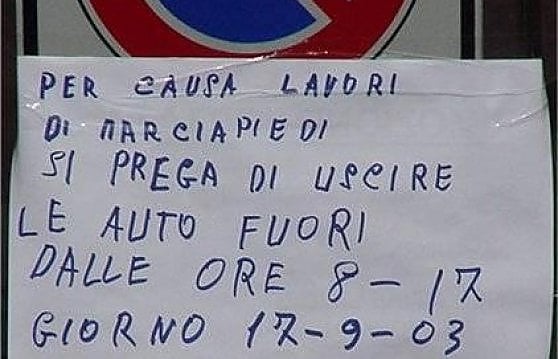 PER CAUSA LAVORI
DI MARCIAPIEDI
SI PREGA DI USCIRE
LE AUTO FUORI
DALLE ORE 8-17
GIORNO 17-9-03